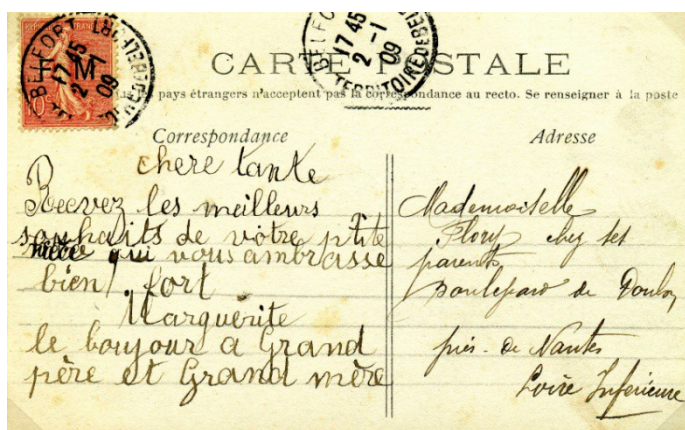 BELFORT
17 45
2 -1
09
TERRITOIRE DE BELFORT
F M
BELFORT
17 45
2 -1
09
TERRITOIRE DE BELFORT
CARTE POSTALE
pays étrangers n'acceptent pas la correspondance au recto. Se renseigner à la poste
Correspondance
chere tante
Recevez les meilleurs
souhaits de votre ptite
niece qui vous ambrasse
bien fort
Marguerite
le bonjour a Grand
père et Grand mère
Adresse
Mademoiselle
Flory chez ses
parents
boulevard de Doulon
près de Nantes
Loire Inférieure